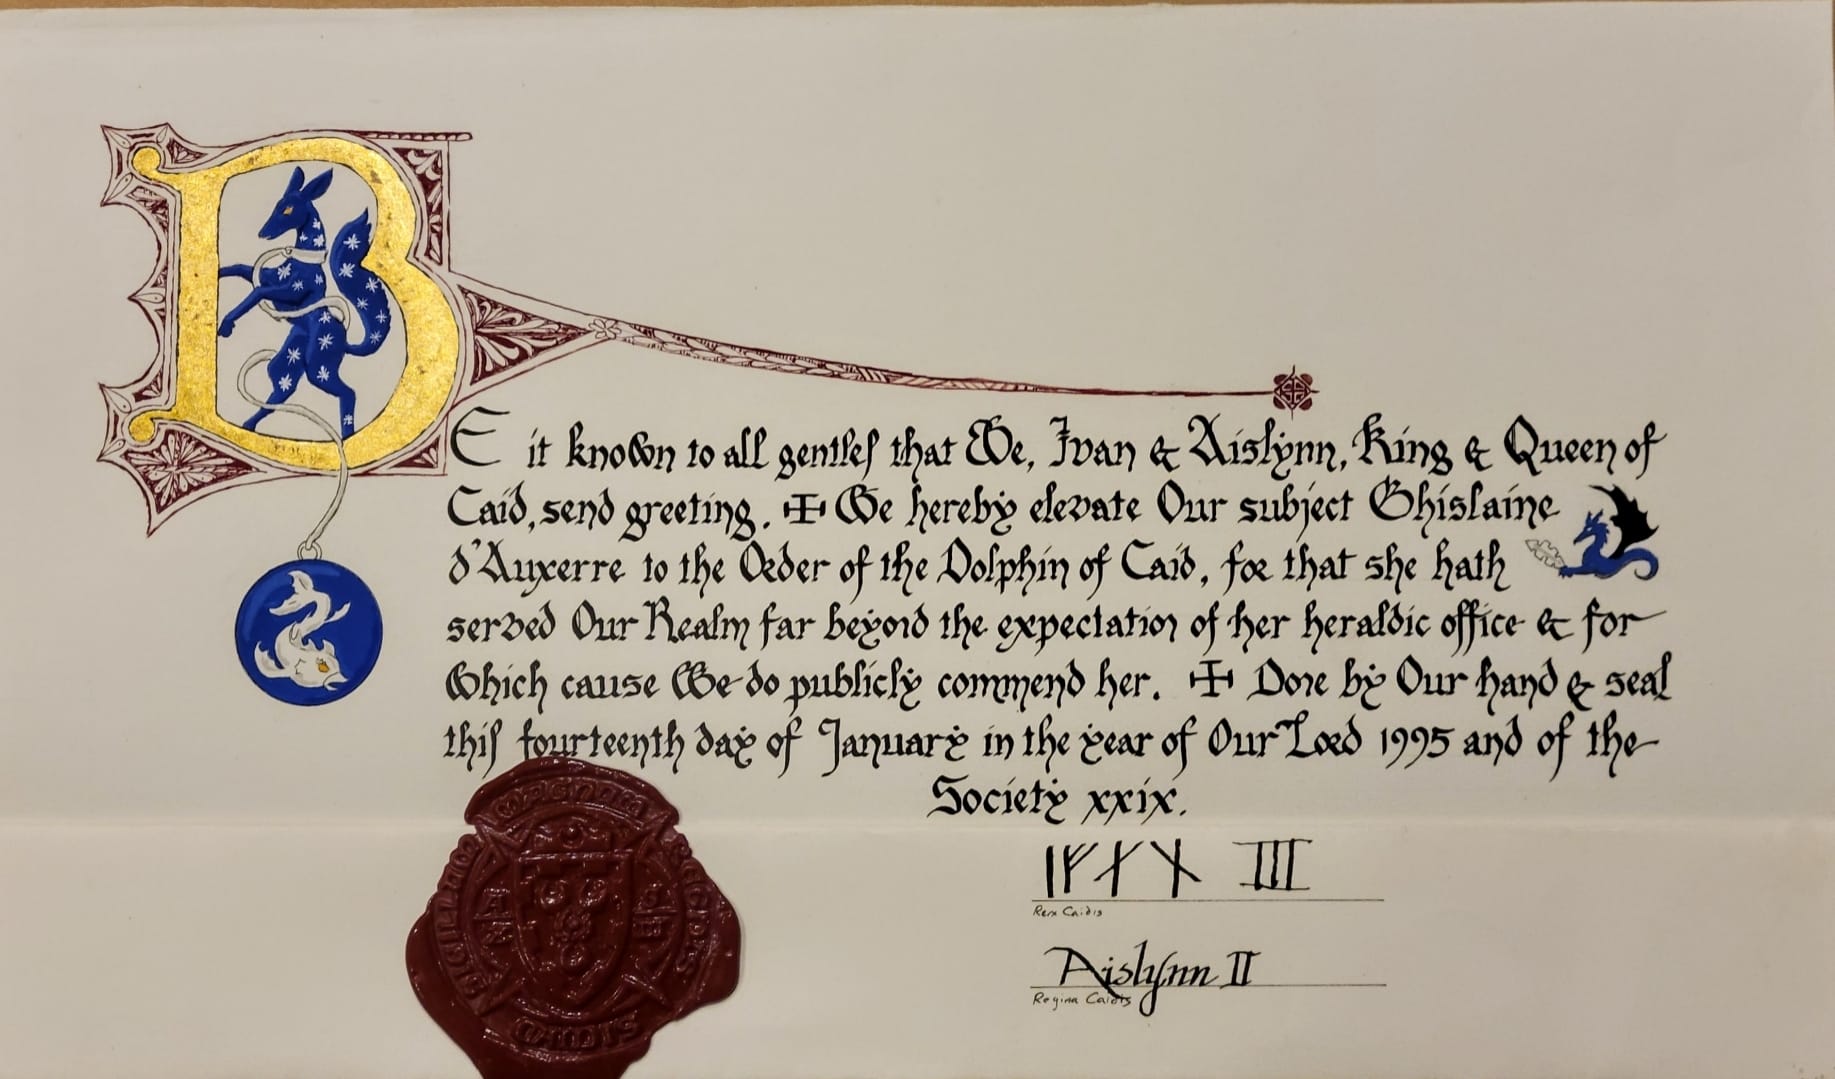 BE it known to all gentles that We, Ivan & Aislynn, King & Queen of
Caid, send greeting. ✠ We hereby elevate Our subject Ghislaine
d'Auxerre to the Order of the Dolphin of Caid, for that she hath
served Our Realm far beyond the expectation of her heraldic office & for
which cause We do publicly commend her. ✠ Done by Our hand & seal
this fourteenth day of January in the year of Our Lord 1995 and of the
Society xxix.
ᛁᚠᚾᚾ III
Rex Caidis
Aislynn II
Regina Caidis
SIGILLUM MAGNUM REGENTIS CAIDIS
A S